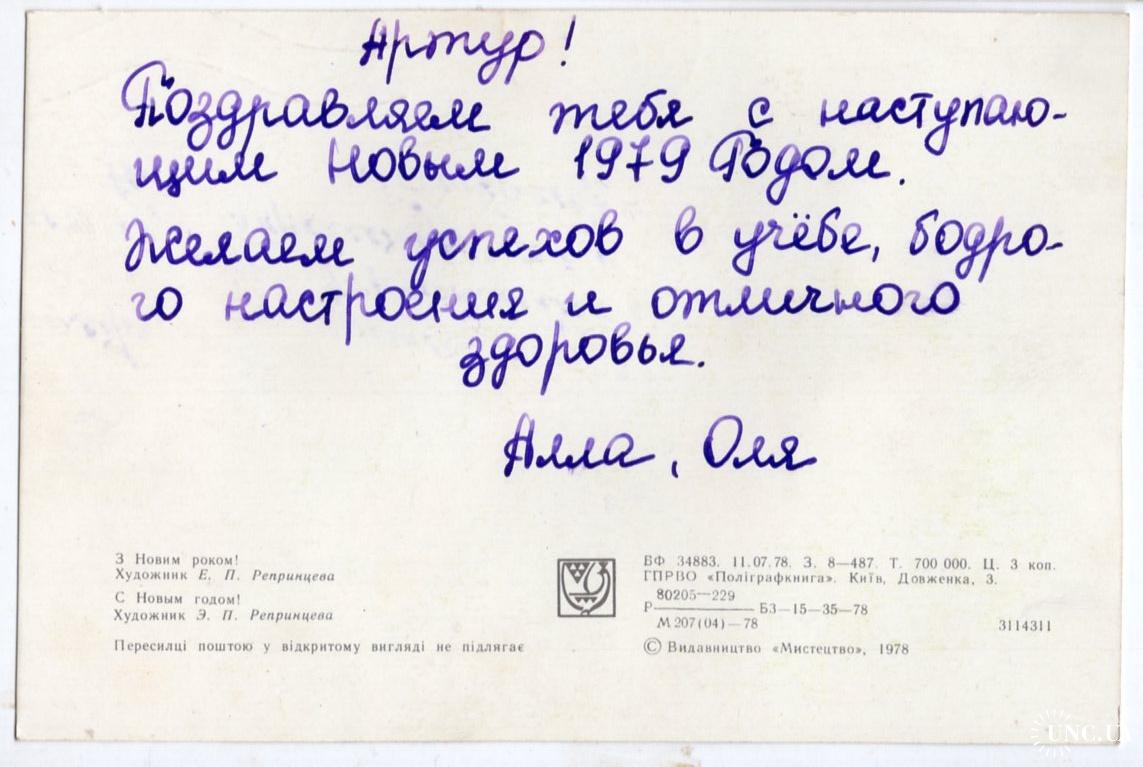 Артур!
Поздравляем тебя с наступаю-
щим Новым 1979 Годом.
Желаем успехов в учёбе, бодро-
го настроения и отличного
здоровья.
Алла, Оля
З Новим роком!
Художник Е. П. Репринцева
С Новым годом!
Художник Э. П. Репринцева
Пересилці поштою у відкритому вигляді не підлягає
БФ 34883. 11.07.78. З. 8—487. Т. 700 000. Ц. 3 коп.
ГПРВО «Поліграфкнига». Київ, Довженка, 3.
80205—229
Р———— БЗ—15—35—78
М 207(04)—78
3114311
© Видавництво «Мистецтво», 1978
UNC.UA